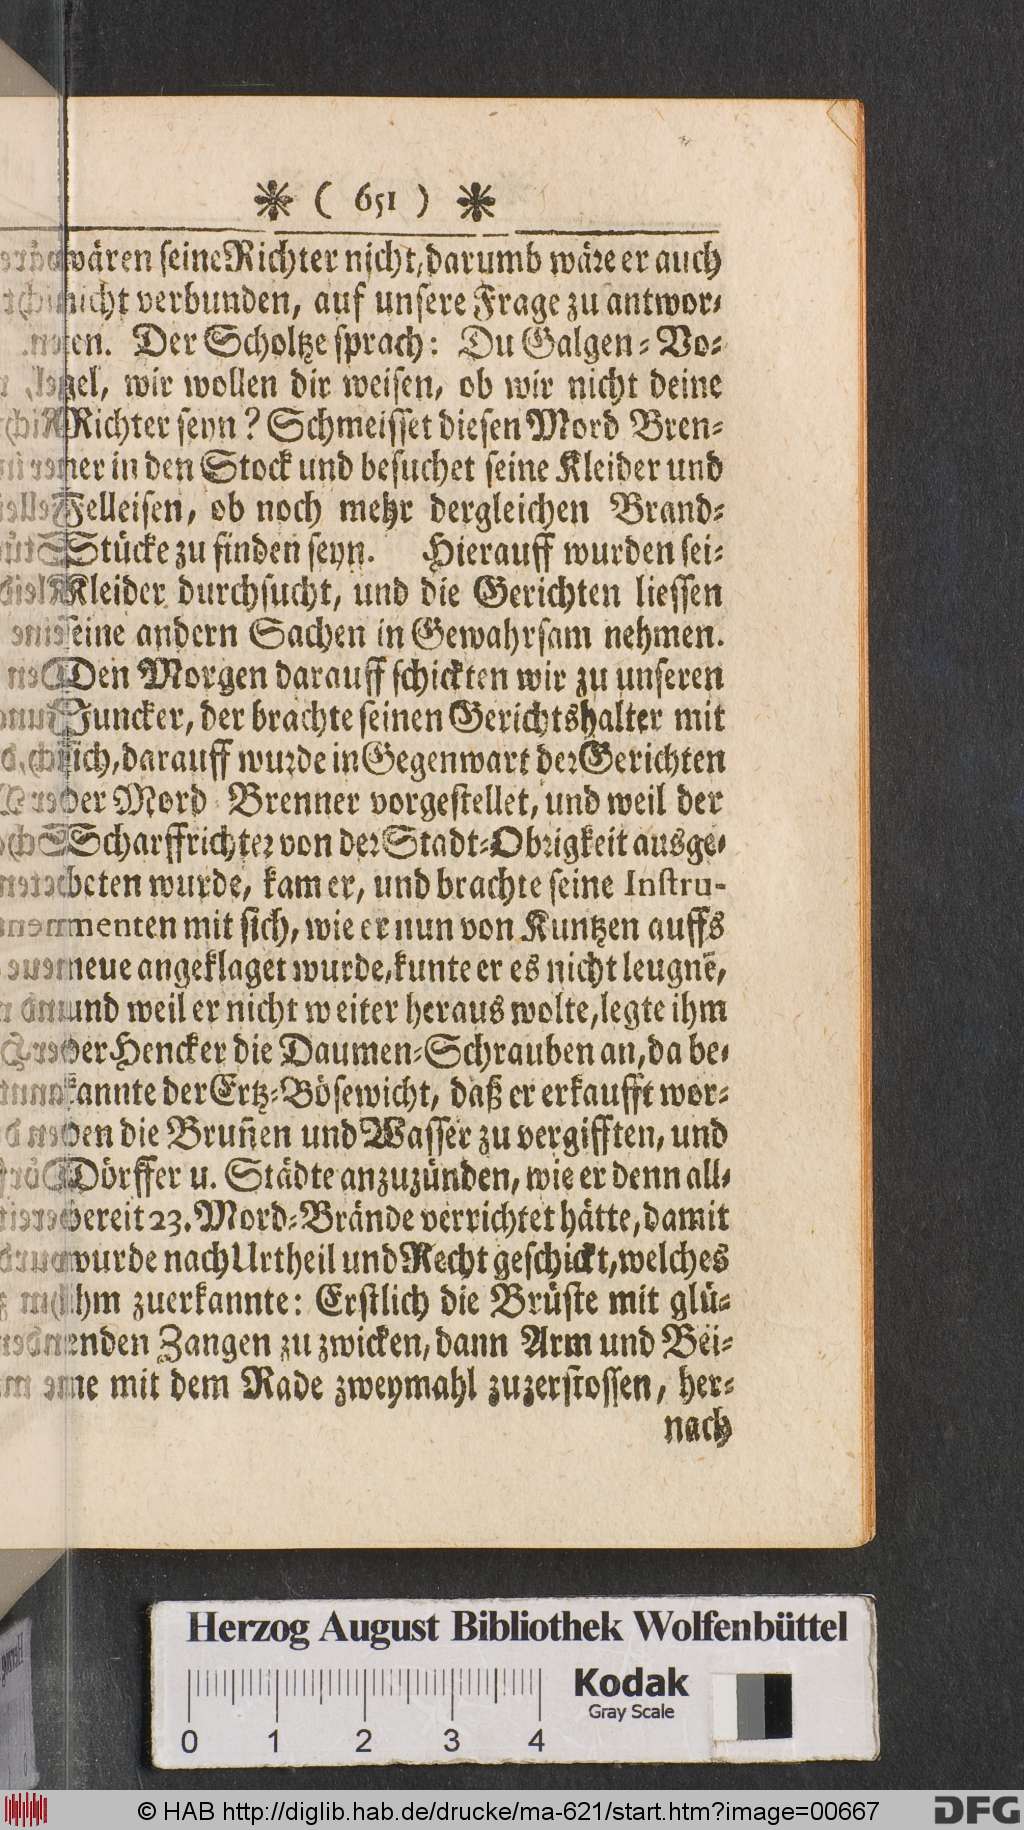 * ( 651 ) *
wären seine Richter nicht, darumb wäre er auch
nicht verbunden, auf unsere Frage zu antwor-
ten. Der Scholtze sprach: Du Galgen-Vo-
gel, wir wollen dir weisen, ob wir nicht deine
Richter seyn? Schmeisset diesen Mord Bren-
ner in den Stock und besuchet seine Kleider und
Felleisen, ob noch mehr dergleichen Brand-
Stücke zu finden seyn. Hierauff wurden sei-
Kleider durchsucht, und die Gerichten liessen
seine andern Sachen in Gewahrsam nehmen.
Den Morgen darauff schickten wir zu unseren
Juncker, der brachte seinen Gerichtshalter mit
sich, darauff wurde in Gegenwart der Gerichten
der Mord Brenner vorgestellet, und weil der
Scharffrichter von der Stadt-Obrigkeit ausge-
beten wurde, kam er, und brachte seine Instru-
menten mit sich, wie er nun von Kuntzen auffs
neue angeklaget wurde, kunte er es nicht leugnē,
und weil er nicht weiter heraus wolte, legte ihm
der Hencker die Daumen-Schrauben an, da be-
kannte der Ertz-Bösewicht, daß er erkaufft wor-
den die Brun̄en und Wasser zu vergifften, und
Dörffer u. Städte anzuzünden, wie er denn all-
bereit 23. Mord-Brände verrichtet hätte, damit
wurde nach Urtheil und Recht geschickt, welches
ihm zuerkannte: Erstlich die Brüste mit glü-
enden Zangen zu zwicken, dann Arm und Bei-
ne mit dem Rade zweymahl zuzerstossen, her-
nach
Herzog August Bibliothek Wolfenbüttel
0 1 2 3 4
Kodak
Gray Scale
© HAB http://diglib.hab.de/drucke/ma-621/start.htm?image=00667
DFG